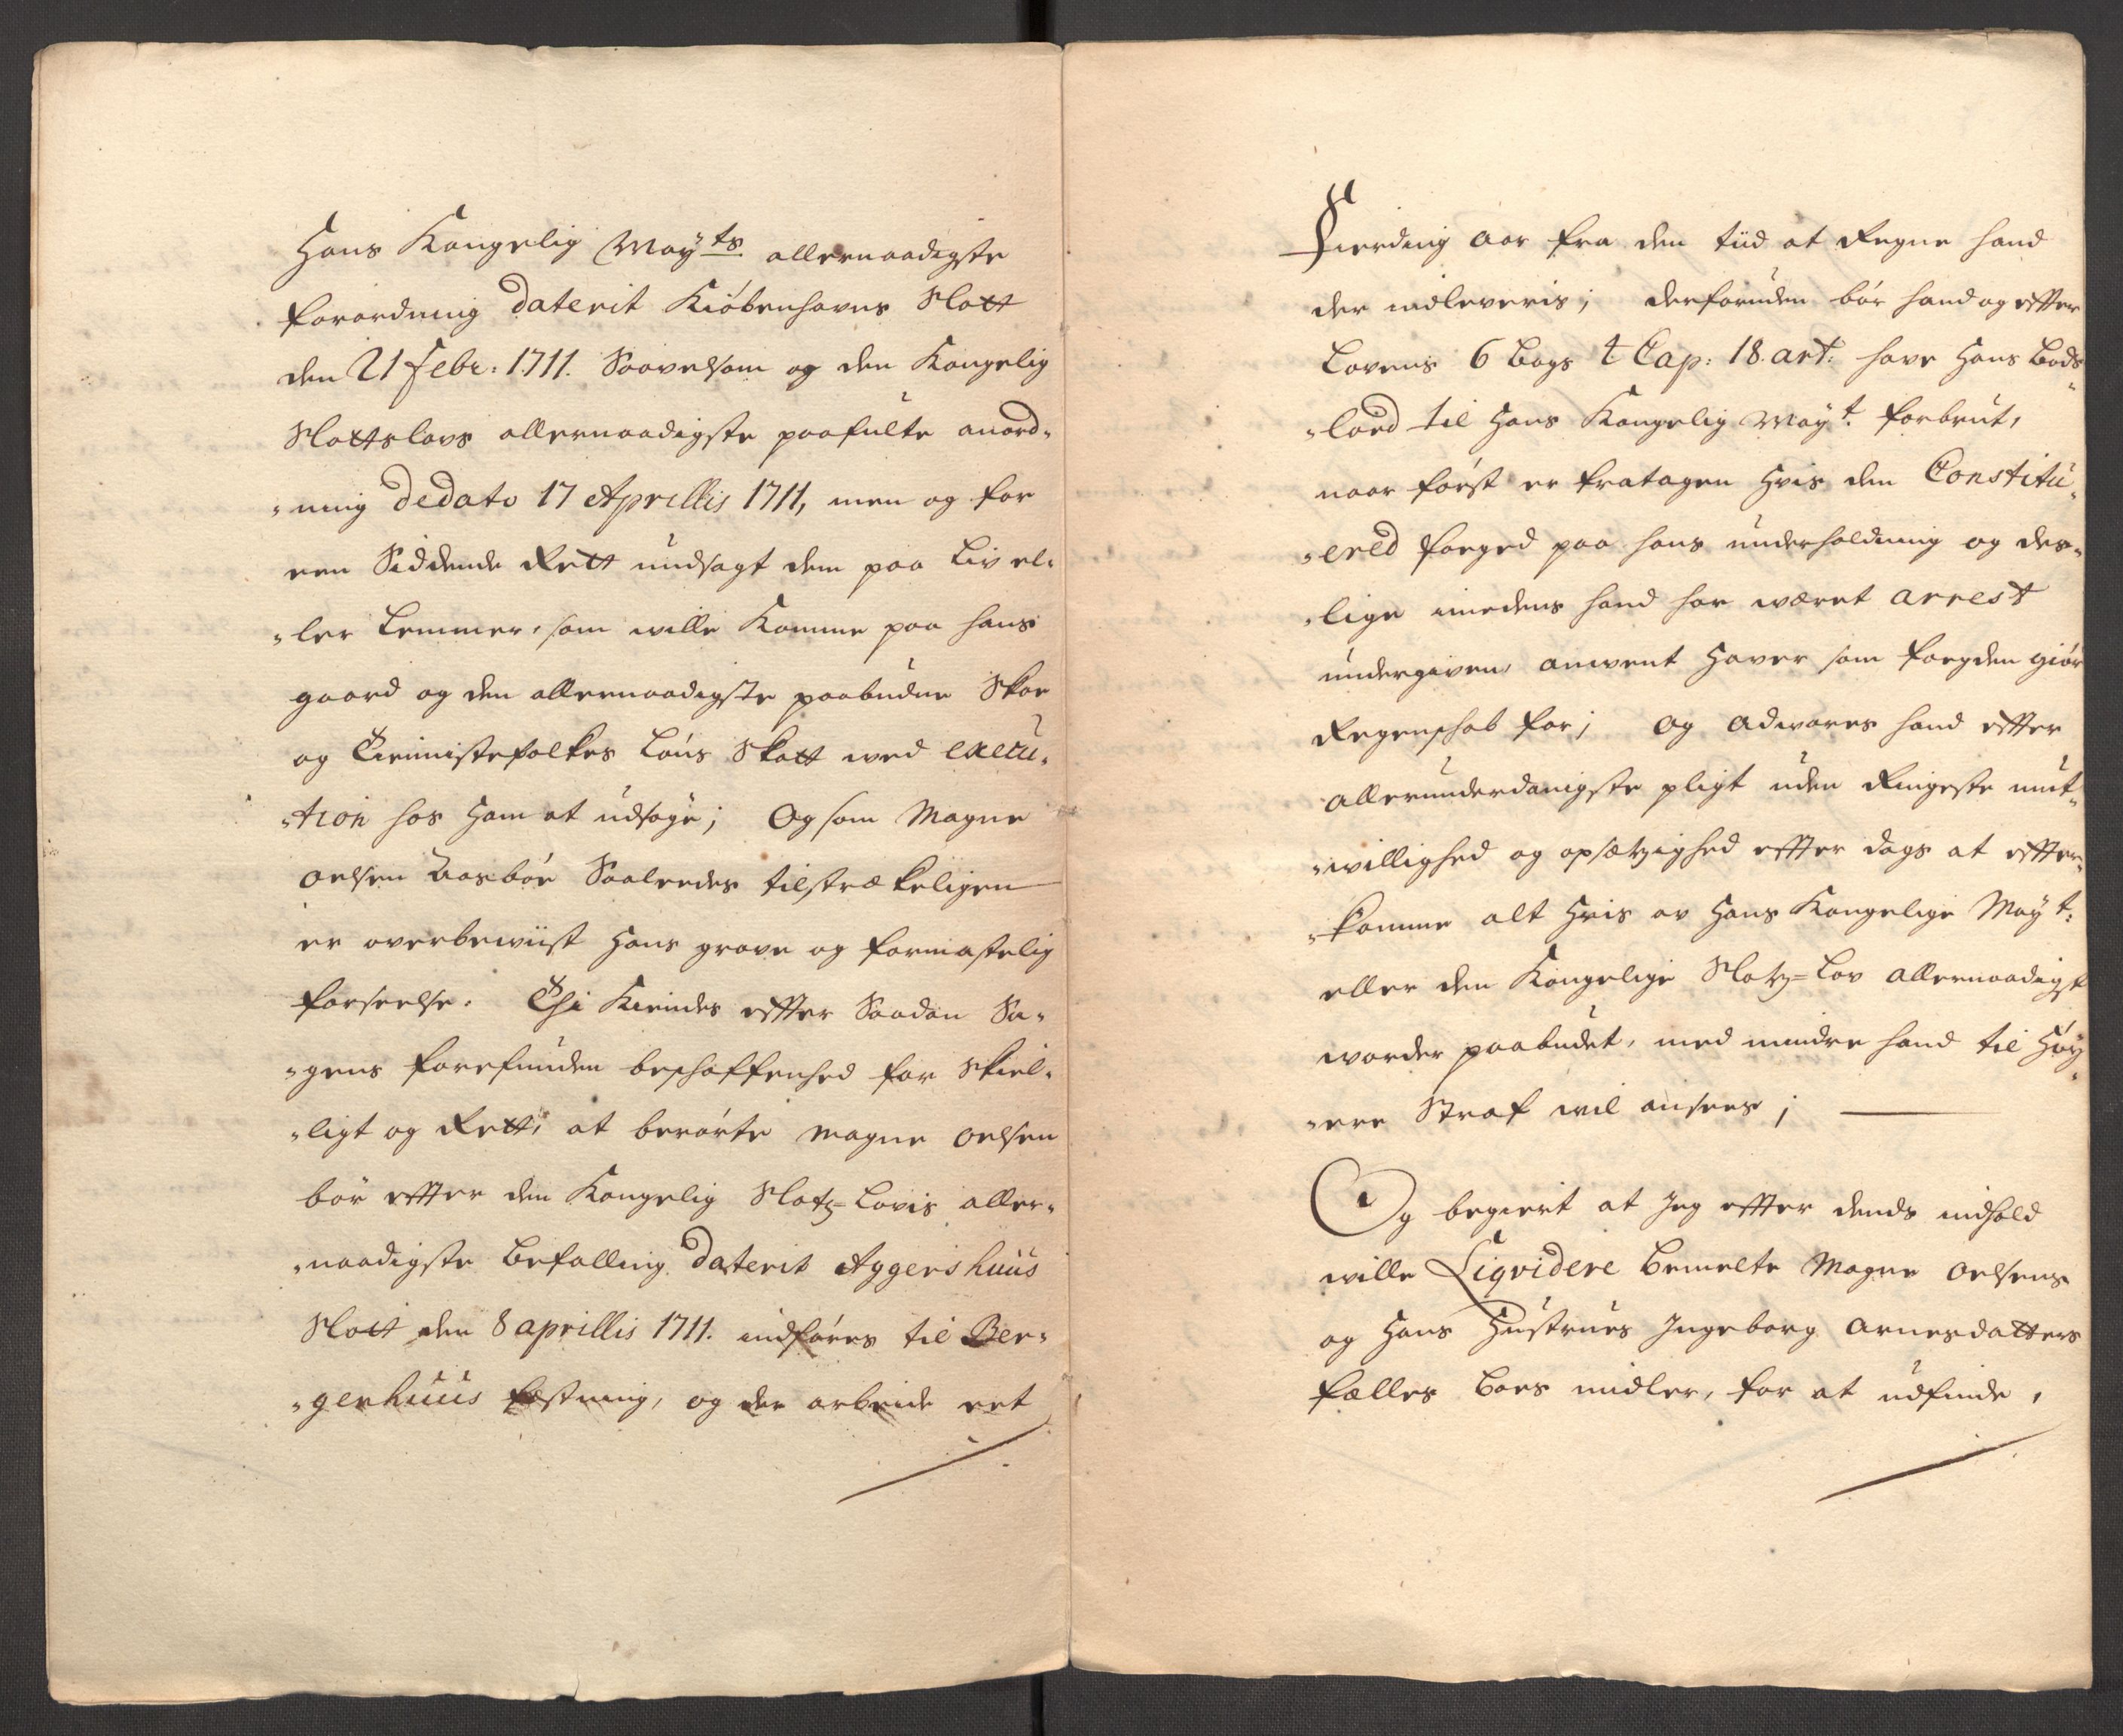 Hans Kongelig Mayts allernaadigste
forordning Daterit Kiöbenhavns Slott
den 21 Febr: 1711. Saavelsom og den Kongelig
Slottslovs allernaadigste paafulte anord-
-ning Dedato 17 Aprillis 1711, men og for
een Siddende Rett undsagt dem paa Liv el-
-ler Lemmer, som wille Komme paa hans
gaard og den allernaadigste paabudne Skoe
og Tienistefolkes Löns Skatt wed execu-
-tion hos ham at udsöge; Og som Magne
Oelsen Aasböe Saaledes tilstrækeligen
er overbewiist hans grove og formastelig
forseelse. Thi Kiendes effter Saadan Sa-
-gens forefunden beschaffenhed for Skiel-
-ligt og Rett, at berörte Magne Oelsen
bör effter den Kongelig Slotz-Lovis aller-
-naadigste Befalling Daterit Aggershuus
Slott den 8 aprillis 1711. indföres til Ber-
-genhuus fæstning, og der arbeide eet
Fierding aar fra den tiid at Regne hand
der indleveris; derforuden bör hand og effter
Lovens 6 Bogs 4 Cap: 18. art: have hans Bods
-lord til Hans Kongelig Mayt. forbrut,
naar först er fratagen hvis den Constitu-
-ered foeged paa hans underholdning og des-
-lige imedens hand har wæret arrest
undergiven, anvent haver som foegden giör
Regenschab for; og advares hand effter
allerunderdanigste pligt uden Ringeste mut-
-willighed og opsætzighed effter dags at effter-
-komme alt hvis av Hans Kongelige Mayt:
eller den Kongelige Slotz=Lov allernaadigst
worder paabudet, med mindre hand til höy
-ere Straf wil ansees;
Og begiert at Jeg effter dends indhold
wille Liqvidere Bemelte Magne Oelsens
og Hans Hustrues Ingeborg Arnesdatters
fælles Boes midler, for at udfinde,